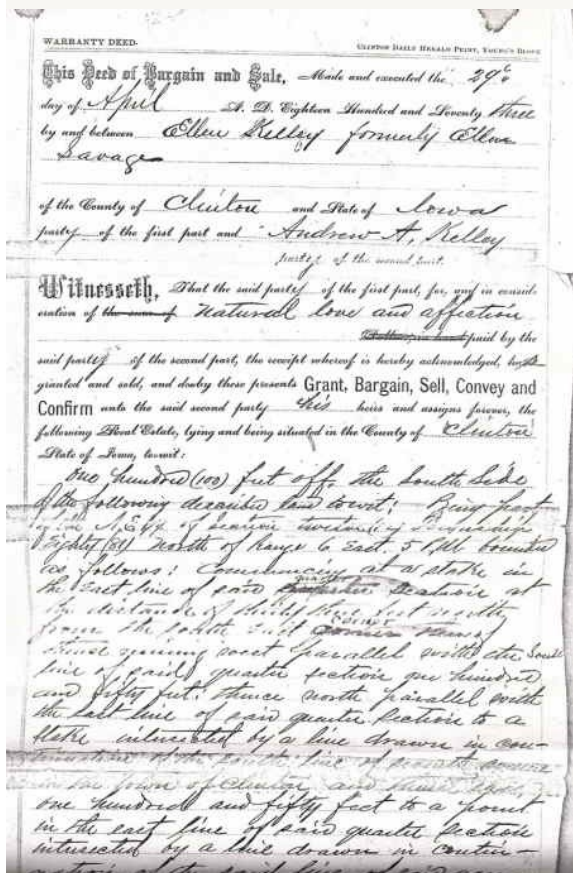 WARRANTY DEED.
CLINTON DAILY HERALD PRINT, YOUNG'S BLOCK
This Deed of Bargain and Sale, Made and executed the 29th
day of April A. D. Eighteen Hundred and Seventy three
by and between Ellen Kelley formerly Ellen
Savage
of the County of Clinton and State of Iowa
party of the first part and Andrew A. Kelley
party of the second part.
Witnesseth, That the said party of the first part, for, and in consid-
eration of the sum of natural love and affection
paid by the
said party of the second part, the receipt whereof is hereby acknowledged, has
granted and sold, and do by these presents Grant, Bargain, Sell, Convey and
Confirm unto the said second party his heirs and assigns forever, the
following Real Estate, lying and being situated in the County of Clinton
State of Iowa, to-wit:
One hundred (100) feet off the South Side
of the following described land to wit: Being part
of the N.E 1/4 of section
Eighty North of Range 6 East. 5 P.M bounded
as follows: Commencing at a stake in
the East line of said quarter Section at
the distance of thirty three feet north
from the South East corner
thence running west parallel with the South
line of said quarter section one hundred
and fifty feet: thence north parallel with
the East line of said quarter Section to a
stake intersected by a line drawn in con-
tinuation of the South line of
in the town of Clinton and thence
one hundred and fifty feet to a point
in the east line of said quarter section
intersected by a line drawn in contin-